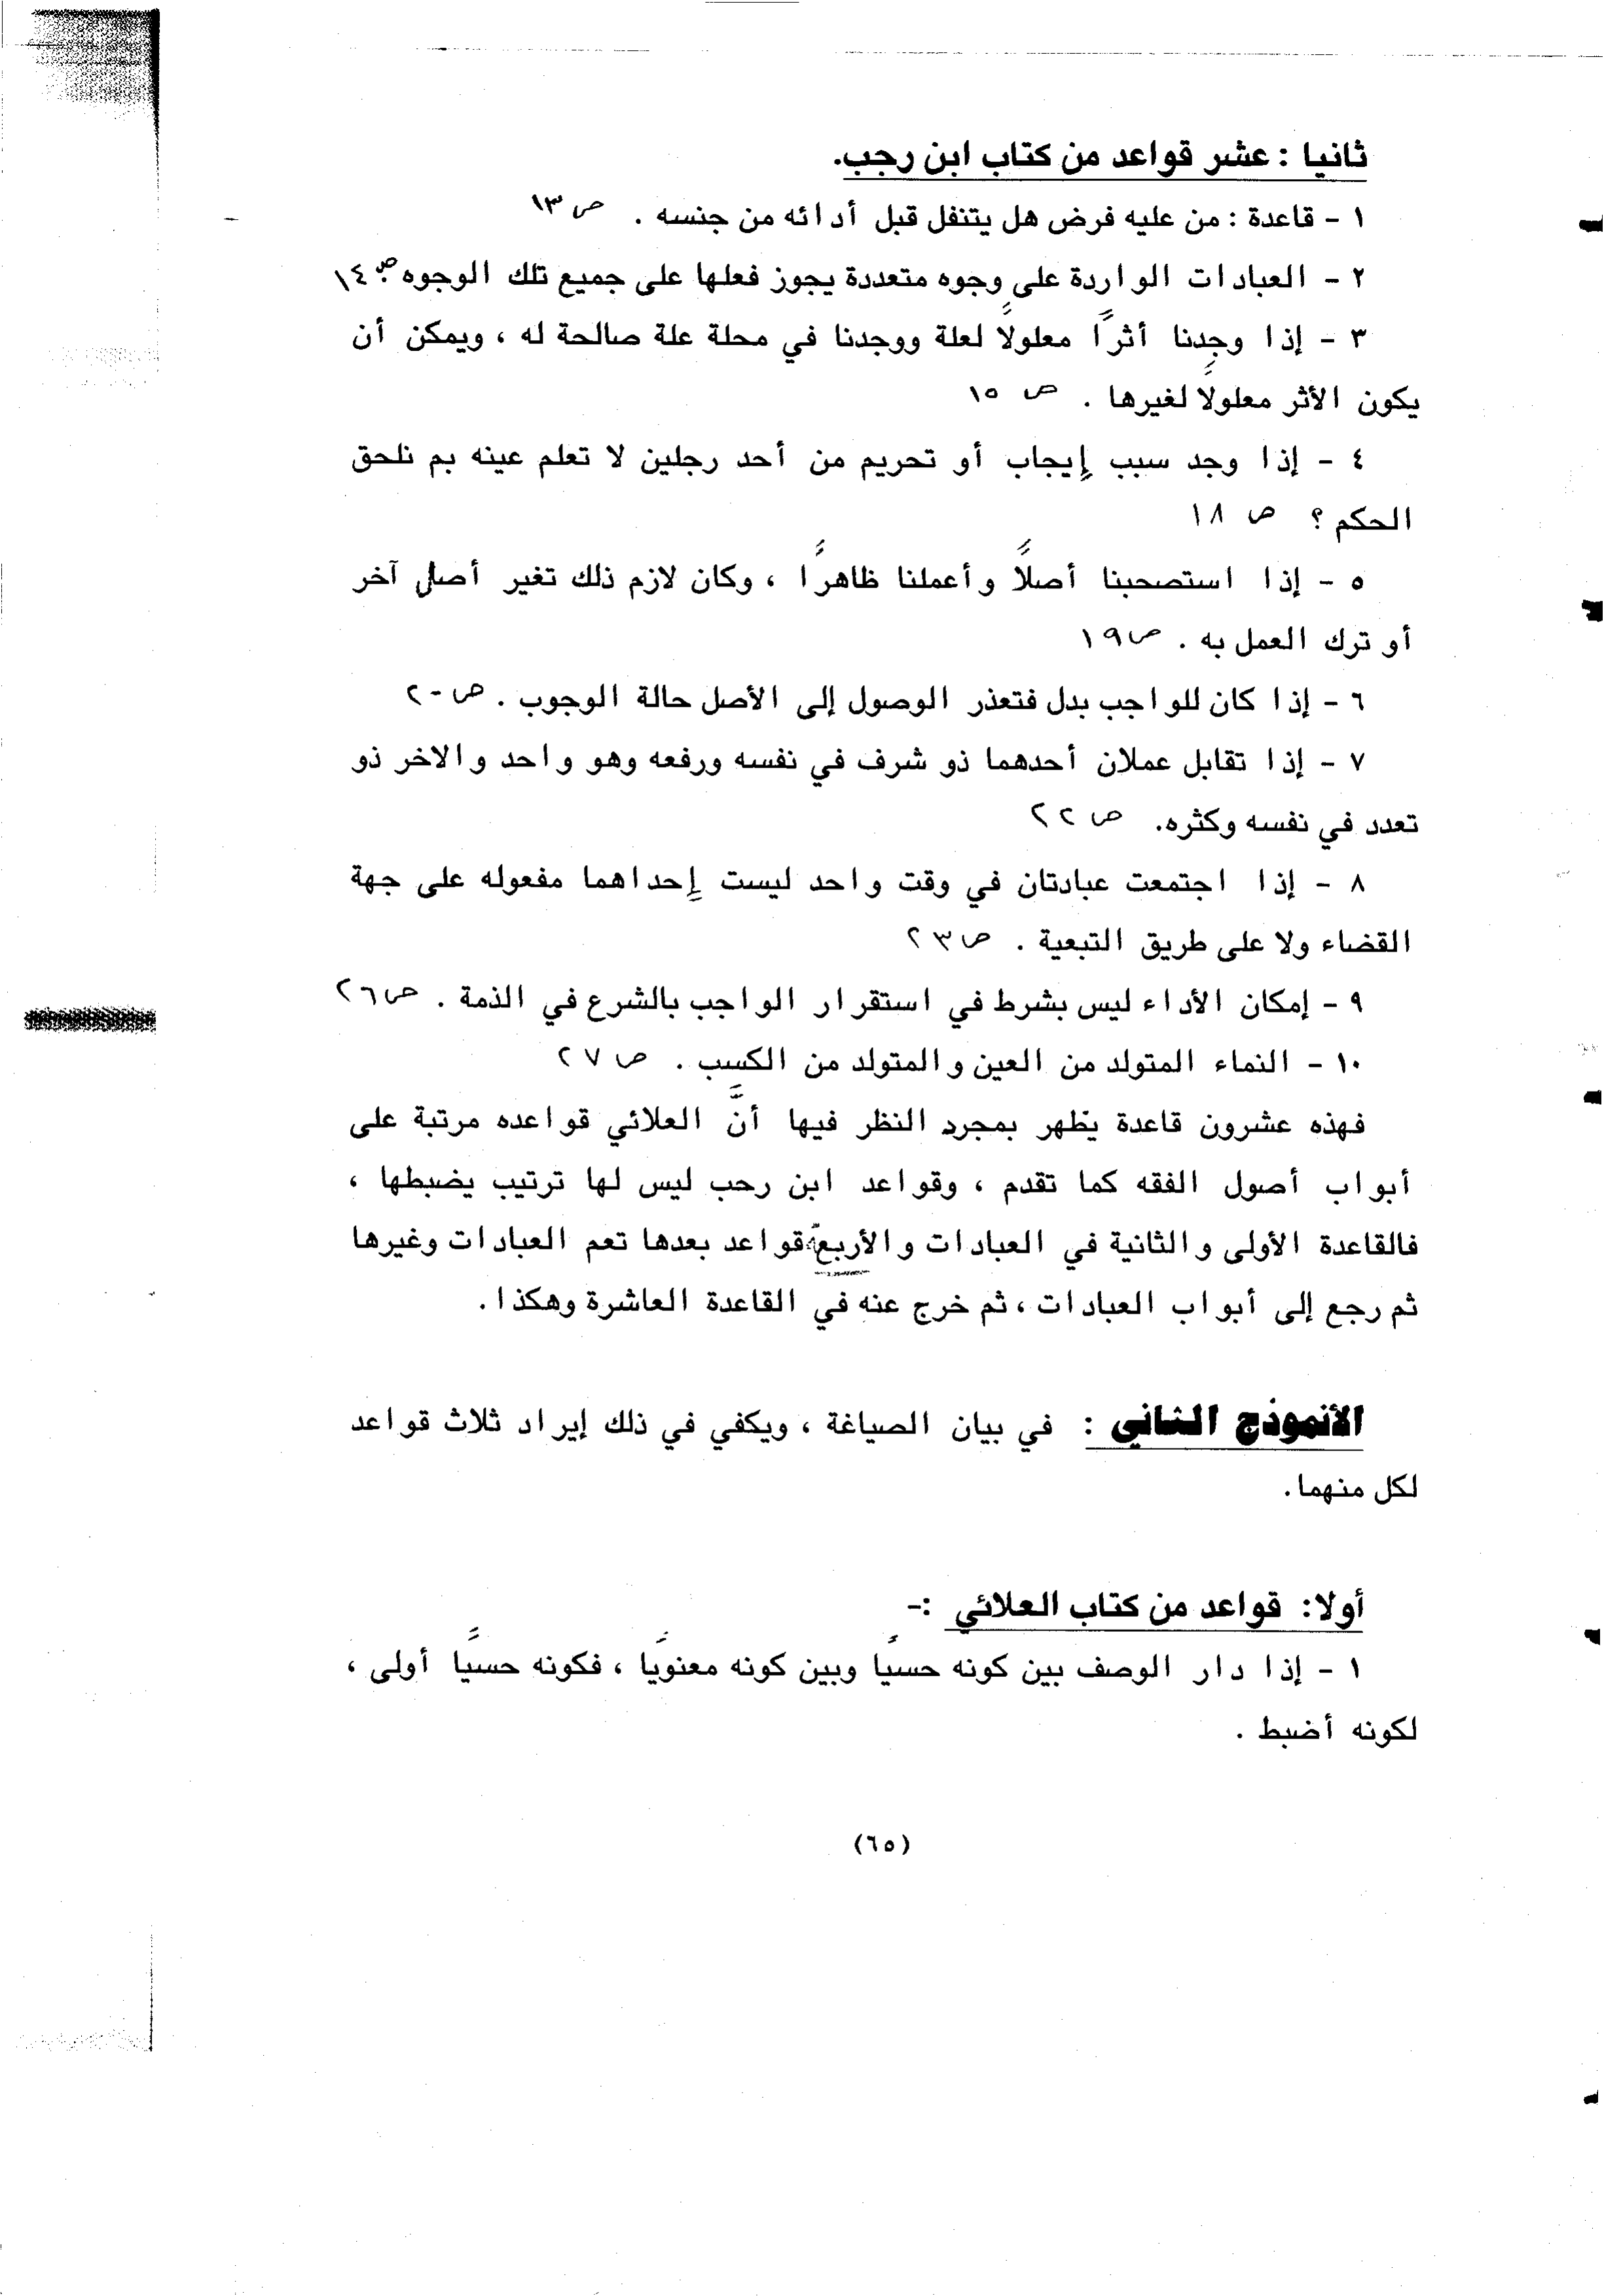 ثانيا : عشر قواعد من كتاب ابن رجب.
١ - قاعدة : من عليه فرض هل يتنفل قبل أدائه من جنسه . ص ١٣
٢ - العبادات الواردة على وجوه متعددة يجوز فعلها على جميع تلك الوجوه . ص ١٤
٣ - إذا وجدنا أثرًا معلولاً لعلة ووجدنا في محلة علة صالحة له ، ويمكن أن
يكون الأثر معلولاً لغيرها . ص ١٥
٤ - إذا وجد سبب إيجاب أو تحريم من أحد رجلين لا تعلم عينه بم نلحق
الحكم ؟ ص ١٨
٥ - إذا استصحبنا أصلاً وأعملنا ظاهرًا ، وكان لازم ذلك تغير أصل آخر
أو ترك العمل به . ص ١٩
٦ - إذا كان للواجب بدل فتعذر الوصول إلى الأصل حالة الوجوب . ص ٢٠
٧ - إذا تقابل عملان أحدهما ذو شرف في نفسه ورفعه وهو واحد والاخر ذو
تعدد في نفسه وكثره. ص ٢٢
٨ - إذا اجتمعت عبادتان في وقت واحد ليست إحداهما مفعوله على جهة
القضاء ولا على طريق التبعية . ص ٢٣
٩ - إمكان الأداء ليس بشرط في استقرار الواجب بالشرع في الذمة . ص ٢٦
١٠ - النماء المتولد من العين والمتولد من الكسب . ص ٢٧
فهذه عشرون قاعدة يظهر بمجرد النظر فيها أنَّ العلائي قواعده مرتبة على
أبواب أصول الفقه كما تقدم ، وقواعد ابن رحب ليس لها ترتيب يضبطها ،
فالقاعدة الأولى والثانية في العبادات والأربعة قواعد بعدها تعم العبادات وغيرها
ثم رجع إلى أبواب العبادات ، ثم خرج عنه في القاعدة العاشرة وهكذا.
الأنموذج الثاني : في بيان الصياغة ، ويكفي في ذلك إيراد ثلاث قواعد
لكل منهما.
أولا: قواعد من كتاب العلائي :-
١ - إذا دار الوصف بين كونه حسيًا وبين كونه معنويًا ، فكونه حسيًا أولى ،
لكونه أضبط .
(٦٥)